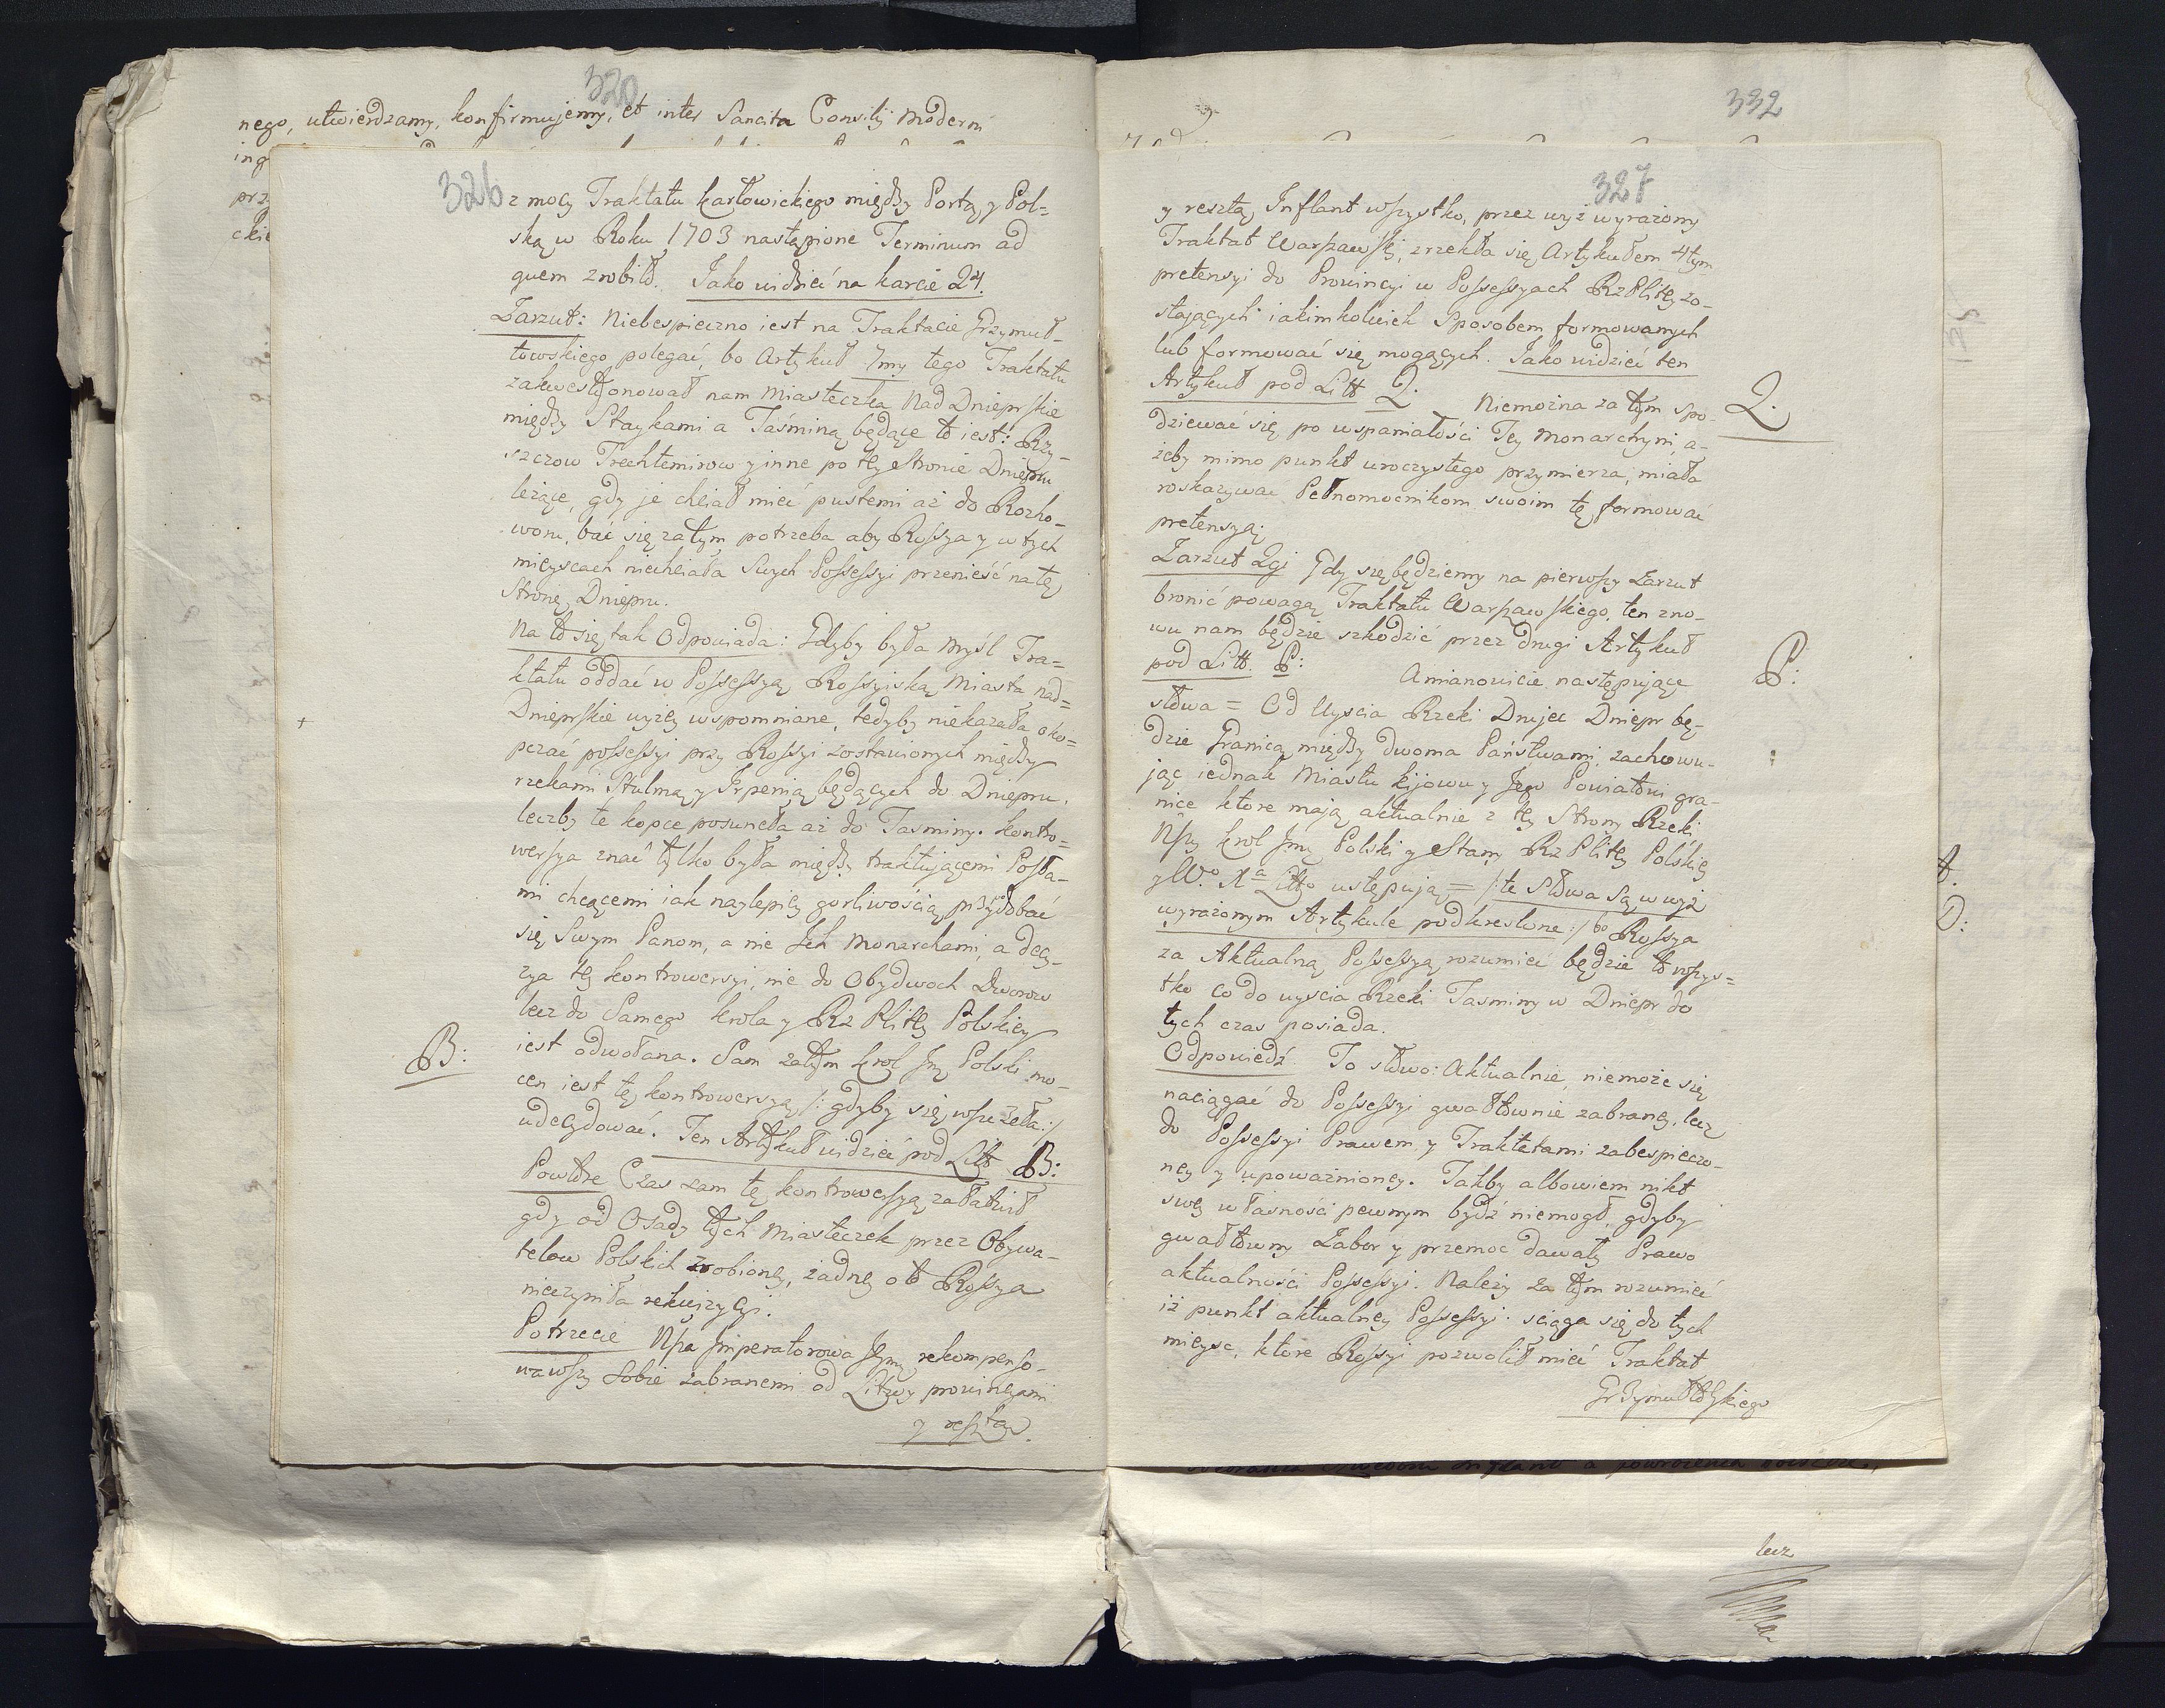 320
nego, utwierdzamy, konfirmujemy, et inter Sancita Consilij moderni
ing
prz
ckie
326
z mocy Traktatu Karłowickiego między Portą y Pol=
ską w Roku 1703 nastąpione Terminum ad
quem zrobił. Jako widzieć na karcie 24.
Zarzut: Niebespieczno iest na Traktacie Grzymuł-
towskiego polegać, bo Artykuł 7my tego Traktatu
zakwestyonował nam Miasteczka Nad Dnieprskie
między Staykami a Taśminą będące to iest: Rzy-
szczow Trechtemirow y inne po tey stronie Dniepru
leżące, gdy je chciał mieć pustemi aż do Rozho-
woru, bać się zatym potrzeba aby Rossya y w tych
mieyscach niechciała Swych Possessyi przenieść na tę
Stronę Dniepru.
Na to się tak Odpowiada: Gdyby była Myśl Tra=
ktatu oddać w Possessyą Rossyiską Miasta nad=
Dnieprskie wyżey wspomniane, tedyby niekazała oko=
pczać possessyi przy Rossyi zostawionych między
rzekami Stulmą y Irpenią będących do Dniepru,
leczby te kopce posuneła aż do Tasminy. Kontro=
wersya znać tylko była między traktującemi Posła-
mi chcącemi iak naylepiey gorliwością przydobać
się Swym Panom, a nie Ich Monarchami, a decy-
zya tey kontrowersyi, nie do Obydwoch Dworow
lecz do Samego krola y RzPlitey Polskiey
iest odwołana. Sam zatym krol Jmć Polski mo-
B:
cen iest tę kontrowersyą /: gdyby się wszczeła :/
udecydować. Ten Artykuł widzieć pod Litt B:
Powtore Czas sam tę kontrowersyą załatwił
gdy od Osady tych Miasteczek przez Obywa-
telow Polskich zrobioney, żadney o to Rossya
nieczyniła rekwizycyi.
Potrzecie Nsza Imperatorowa Jmć rekompenso-
wawszy sobie zabranemi od Litwy prowincyami
y resztą
332
327
y resztą Inflant wszystko, przez wyż wyrażony
Traktat Warszawski, zrzekła się Artykułem 4tym
pretensyi do Prowincyi w Possessyach RzPlitey zo-
stających iakimkolwiek Sposobem formowanych
lub formować się mogących. Jako widzieć ten
Artykuł pod Litt Q. Niemożna za tym spo-
Q.
dziewać się po wspaniałości Tey Monarchyni, a-
żeby mimo punkt uroczystego przymierza, miała
roskazywać Pełnomocnikom swoim tę formować
pretensyą.
Zarzut 2gi Gdy się będziemy na pierwszy Zarzut
bronić powagą Traktatu Warszawskiego, ten zno-
wu nam będzie szkodzić przez drugi Artykuł
pod Litt. P: Amianowicie następujące
P:
słowa = Od Uyscia Rzeki Drujec Dniepr bę-
dzie Granicą między dwoma Państwami, zachowu-
jąc iednak Miastu Kijowu y Jego Powiatowi gra-
nice ktore mają aktualnie z tey Strony Rzeki
Nszy krol Jmć Polski y Stany RzPlitey Polskiey
y W.o Xa Litto ustępują = /: te słowa są w wyż
wyrażonym Artykule podkreslone :/ bo Rossya
za Aktualną Possessyą rozumieć będzie to wszys=
tko co do uyscia Rzeki Tasminy w Dniepr do
tych czas posiada.
Odpowiedź To słowo: Aktualnie, niemoże się
naciągać do Possessyi gwałtownie zabraney, lecz
do Possessyi Prawem y Traktatami zabespieczo-
ney y upoważnioney. Takby albowiem nikt
swey własności pewnym bydź niemogł, gdyby
gwałtowny Zabor y przemoc dawały Prawo
aktualności Possessyi. Należy za tym rozumieć
iż punkt aktualney Possessyi sciąga się do tych
mieysc, ktore Rossyi pozwolił mieć Traktat
Grzymułtoskiego
D:
lecz